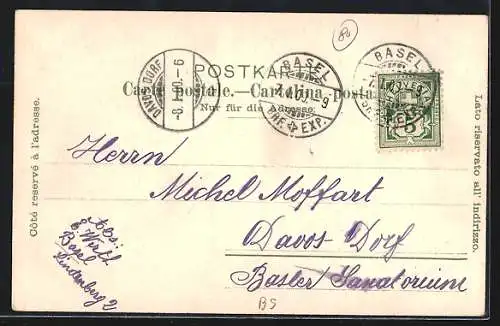 POSTKARTE
Carte postale.—Cartolina posta
Nur für die Adresse.
DAVOS-DORF
-8.I.00.-6
BASEL
BRF. EXP.
BASEL
Côté reservé à l'adresse.
Lato riservato all' indirizzo.
Herrn
Michel Moffart
Davos-Dorf
Basler Sanatorium
Abs.
Basel
Lindenberg 2
BS